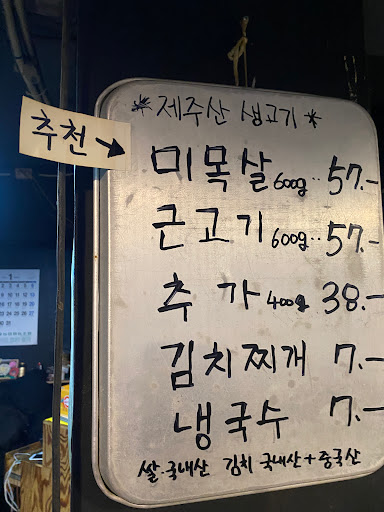 추천 →
* 제주산 생고기 *
미목살 600g.. 57.-
근고기 600g.. 57.-
추가 400g 38.-
김치찌개 7.-
냉국수 7.-
쌀.국내산 김치 국내산+중국산